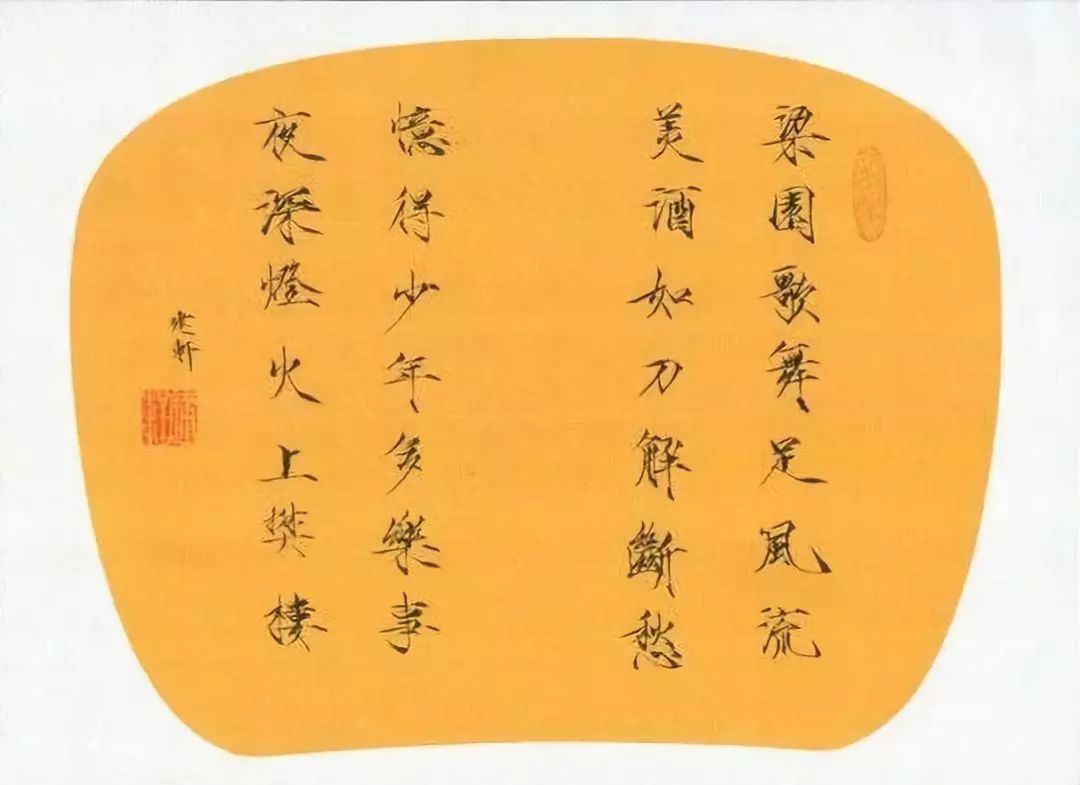 梁園歌舞足風流
美酒如刀解斷愁
憶得少年多樂事
夜深燈火上樊樓
軒